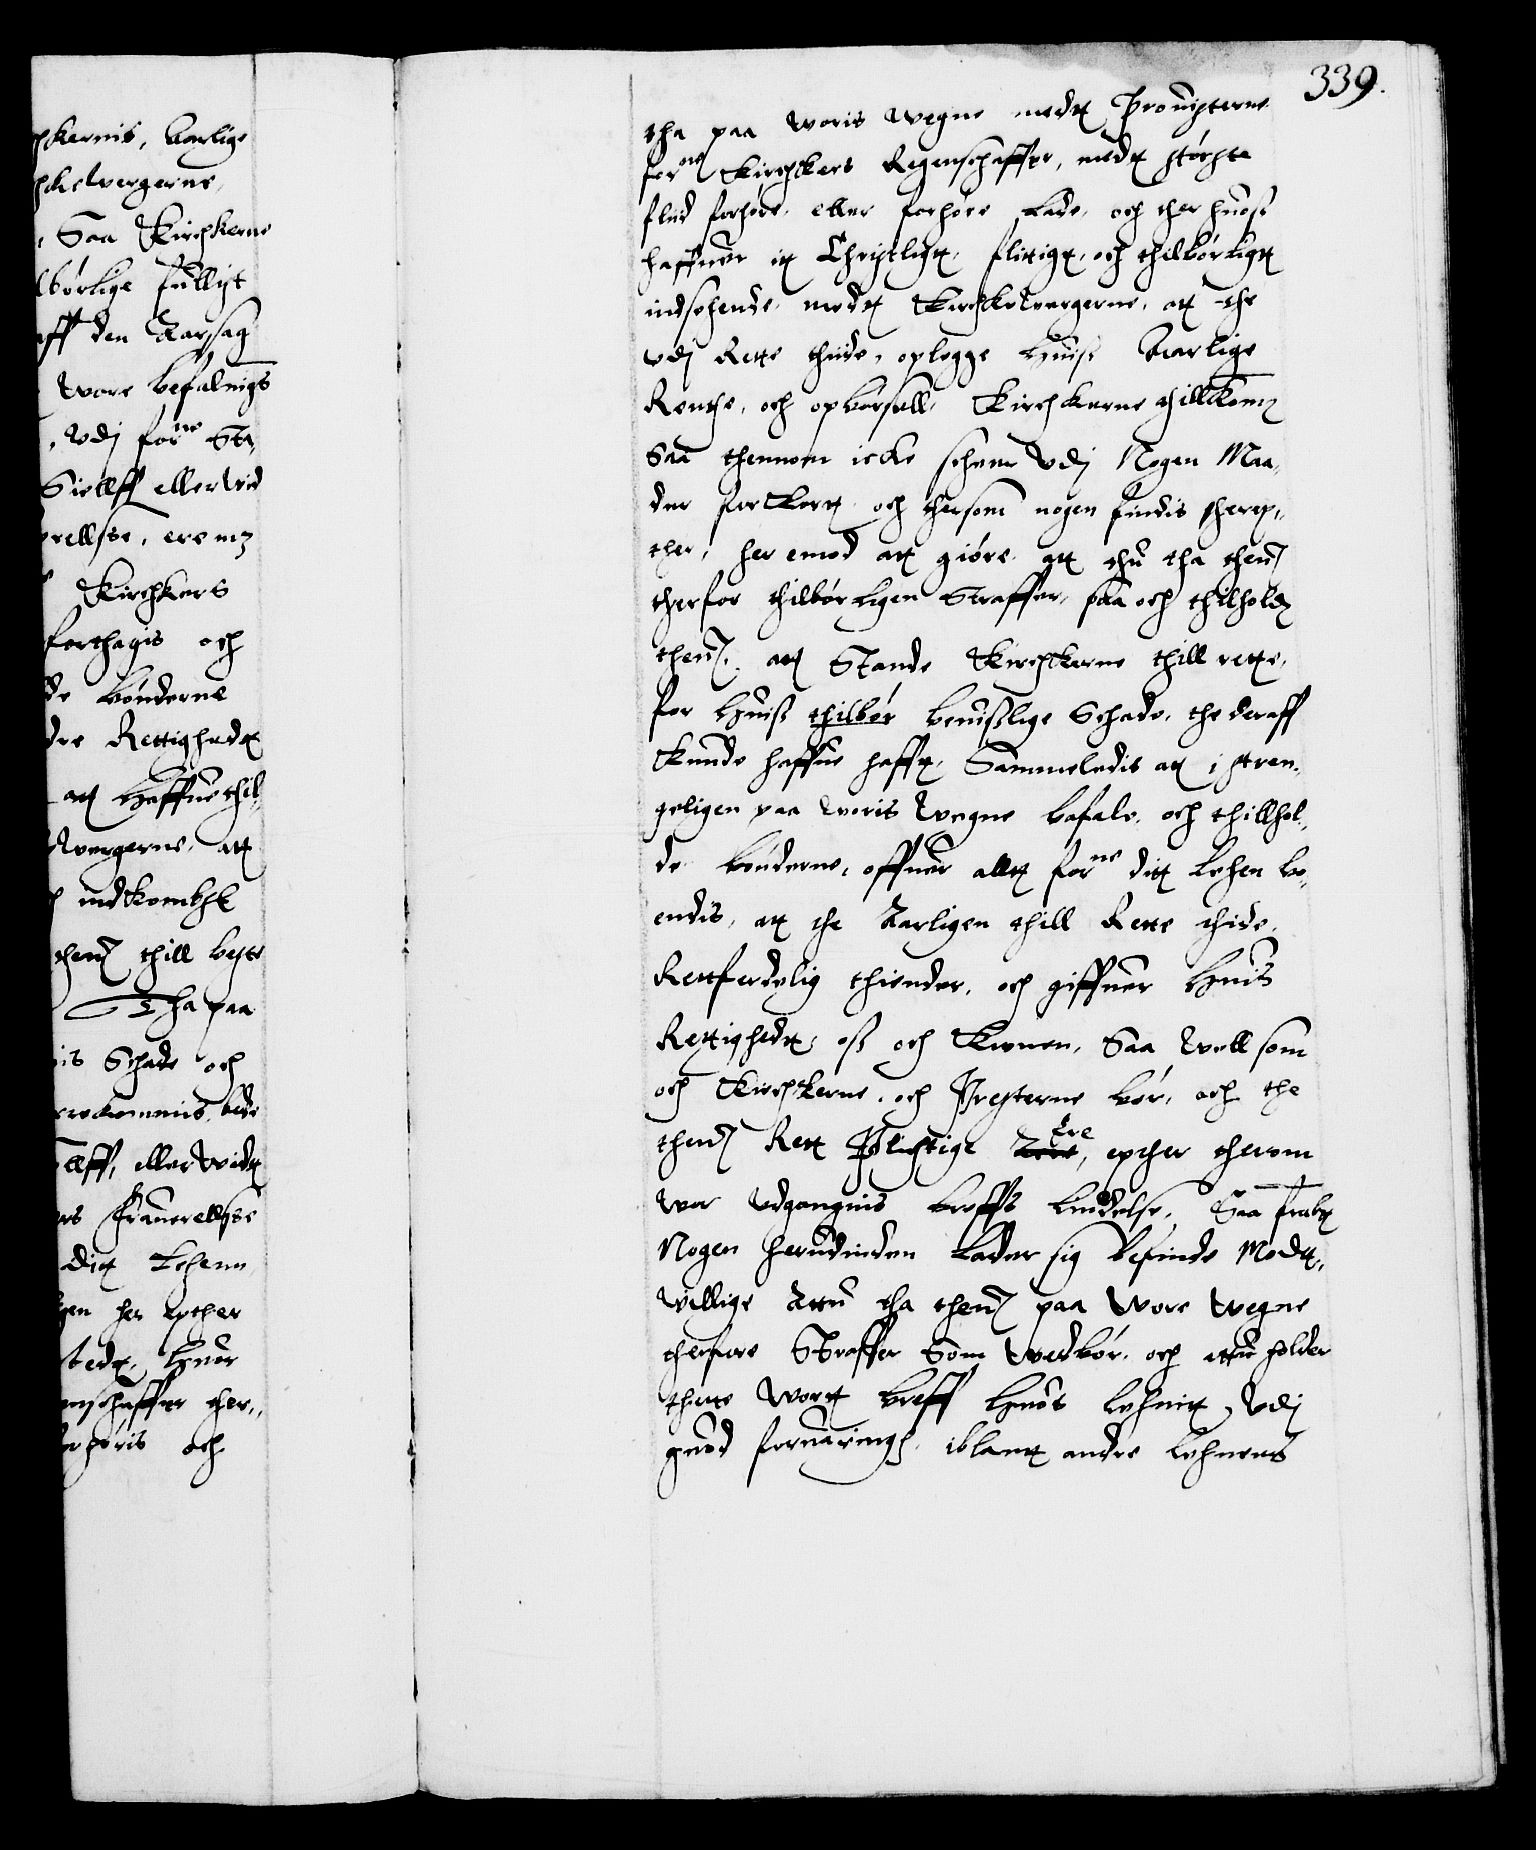 339.
chkernis, Aarlige
chkelvergerne,
Saa Kirchkerne
lbørlige fulligt
aff den Aarsag
wore befalnigs
, Udj forne Sta,
Sielff eller wid
rellse, ere mz
Kirchkers
forthagis och
de bønderne
dre Rettighedt
att Haffue thil
wergerne, att
indkombst
thenj thill beste
Tha paa
is Schade och
ellff, eller widt
dit Lehenn
gen her epther
stedt, Huor
nschaffer ther,,
rhøris och
tha paa woris wegne medt Prouisterne
forne Kirchkers Regenschaffer, medt største
fliid forhøre, eller forhøre lade, och ther huoss
haffuer it Christligt, flittigt, och thilbørligt
indsehende, medt Kirchkewergerne, at the
Udj Rette thiide, oplegge Huiss Aarlige
Renthe, och opbørsell, Kirchkerne thillkomz
Saa thennom icke scheer Udj Nogen Maa,
der forkort, och thersom nogen findis therep,,
ther, her emod att giøre, att thu tha thenj
therfor thilbørligen Straffer, paa och thilholdz
thenj, att Stande Kirchkerne thill rette,
for Huiss thilbør beuisslige Schade, the deraff
kunde haffue hafft, Sammeledis at i stren,
geligen paa woris wegne befale, och thillhol,
de bønderne, offuer allt forne dit Lehen bo,
endis, at the Aarligen thill Rette thide,
Rettferdelig thiender, och giffuer Huis
Rettighedt, oss och Kronen, Saa Well som
och Kirchkerne, och Presterne bør, och the
thenj Rett Plichtige Ere, epther therom
wor udgangnis breffs liudelse, Saa frabt
Nogen herudinden lader sig befinde Modt,,
willige Attu tha thenj paa Wore wegne
therfore Straffer Som Wedbør, och attu holder
thette Wort breff Huos Lehnit, Udj
guod foruaringh, iblant andre Lehnens